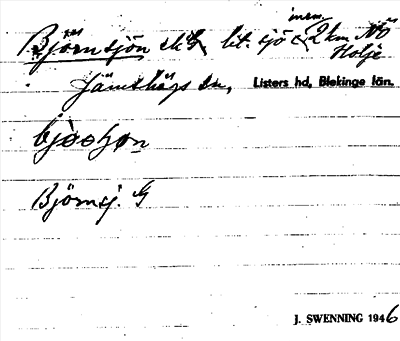 Björnsjön lit. sjö 2 km NÖ
Holje
Jämshögs sn, Listers hd, Blekinge län.
Björnsj. G
J. SWENNING 1946